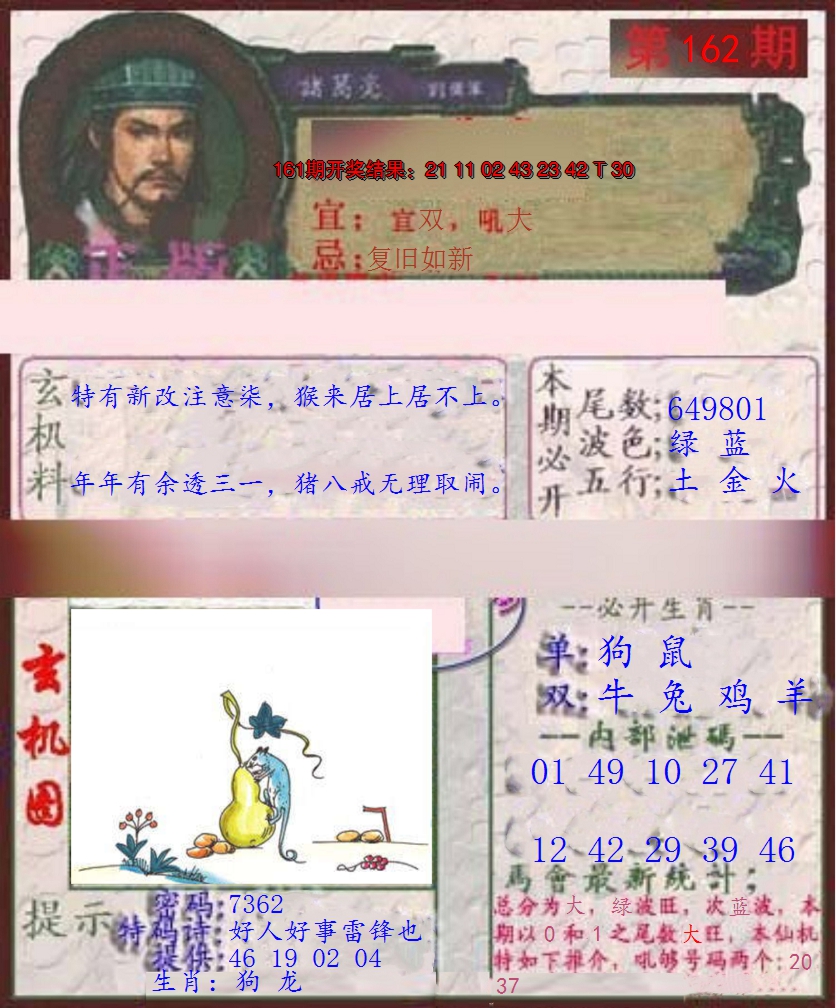 第162期
諸葛亮
161期开奖结果：21 11 02 43 23 42 T 30
宜；宜双，吼大
忌；复旧如新
正版
玄机料
特有新改注意柒，猴来居上居不上。
年年有余透三一，猪八戒无理取闹。
本期必开
尾数;649801
波色;绿 蓝
五行;土 金 火
玄机图
--必开生肖--
单:狗 鼠
双:牛 兔 鸡 羊
--内部泄碼--
01 49 10 27 41
12 42 29 39 46
馬會最新統計;
总分为大，绿波旺，次蓝波，本
期以0和1之尾数大旺，本仙机
特如下推介，吼够号码两个:20
37
提示
密码:7362
特码诗:好人好事雷锋也
提供:46 19 02 04
生肖: 狗 龙